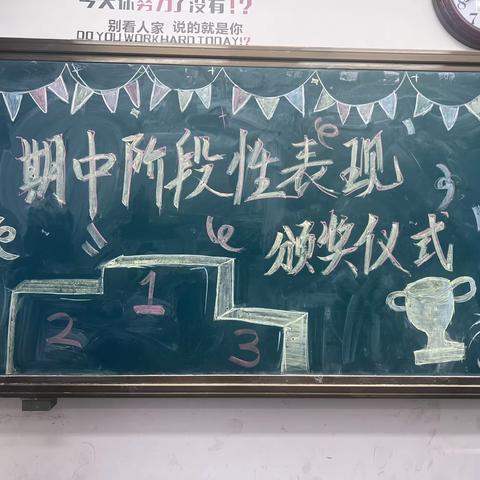 今天你努力了没有!?
别看人家 说的就是你
DO YOU WORK HARD TODAY!?
期中阶段性表现
颁奖仪式
1
2
3
8
7